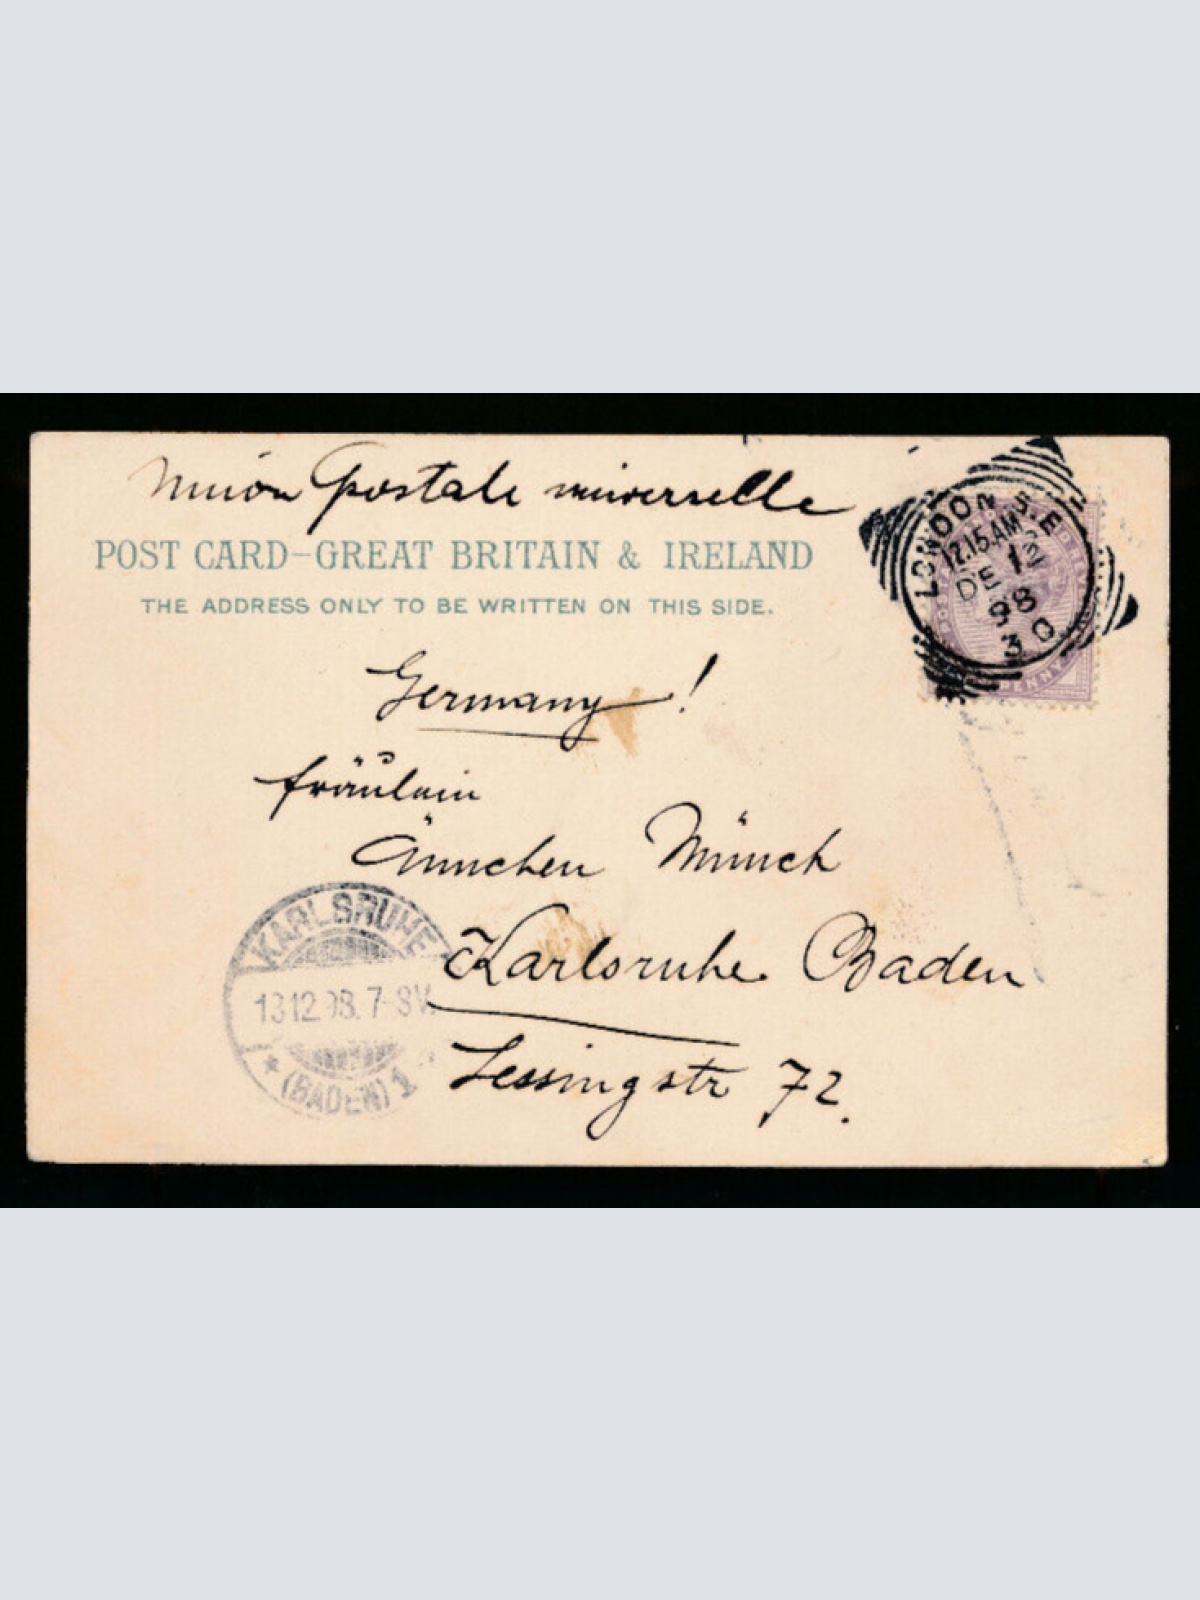 Union Postale universelle
POST CARD-GREAT BRITAIN & IRELAND
THE ADDRESS ONLY TO BE WRITTEN ON THIS SIDE.
LONDON S.E
12.15AM
DE 12
98
30
PENNY
Germany!
Fräulein
Ännchen Münch
Karlsruhe Baden
Lessingstr 72.
KARLSRUHE
13 12.98. 7-8V.
* (BADEN) 1